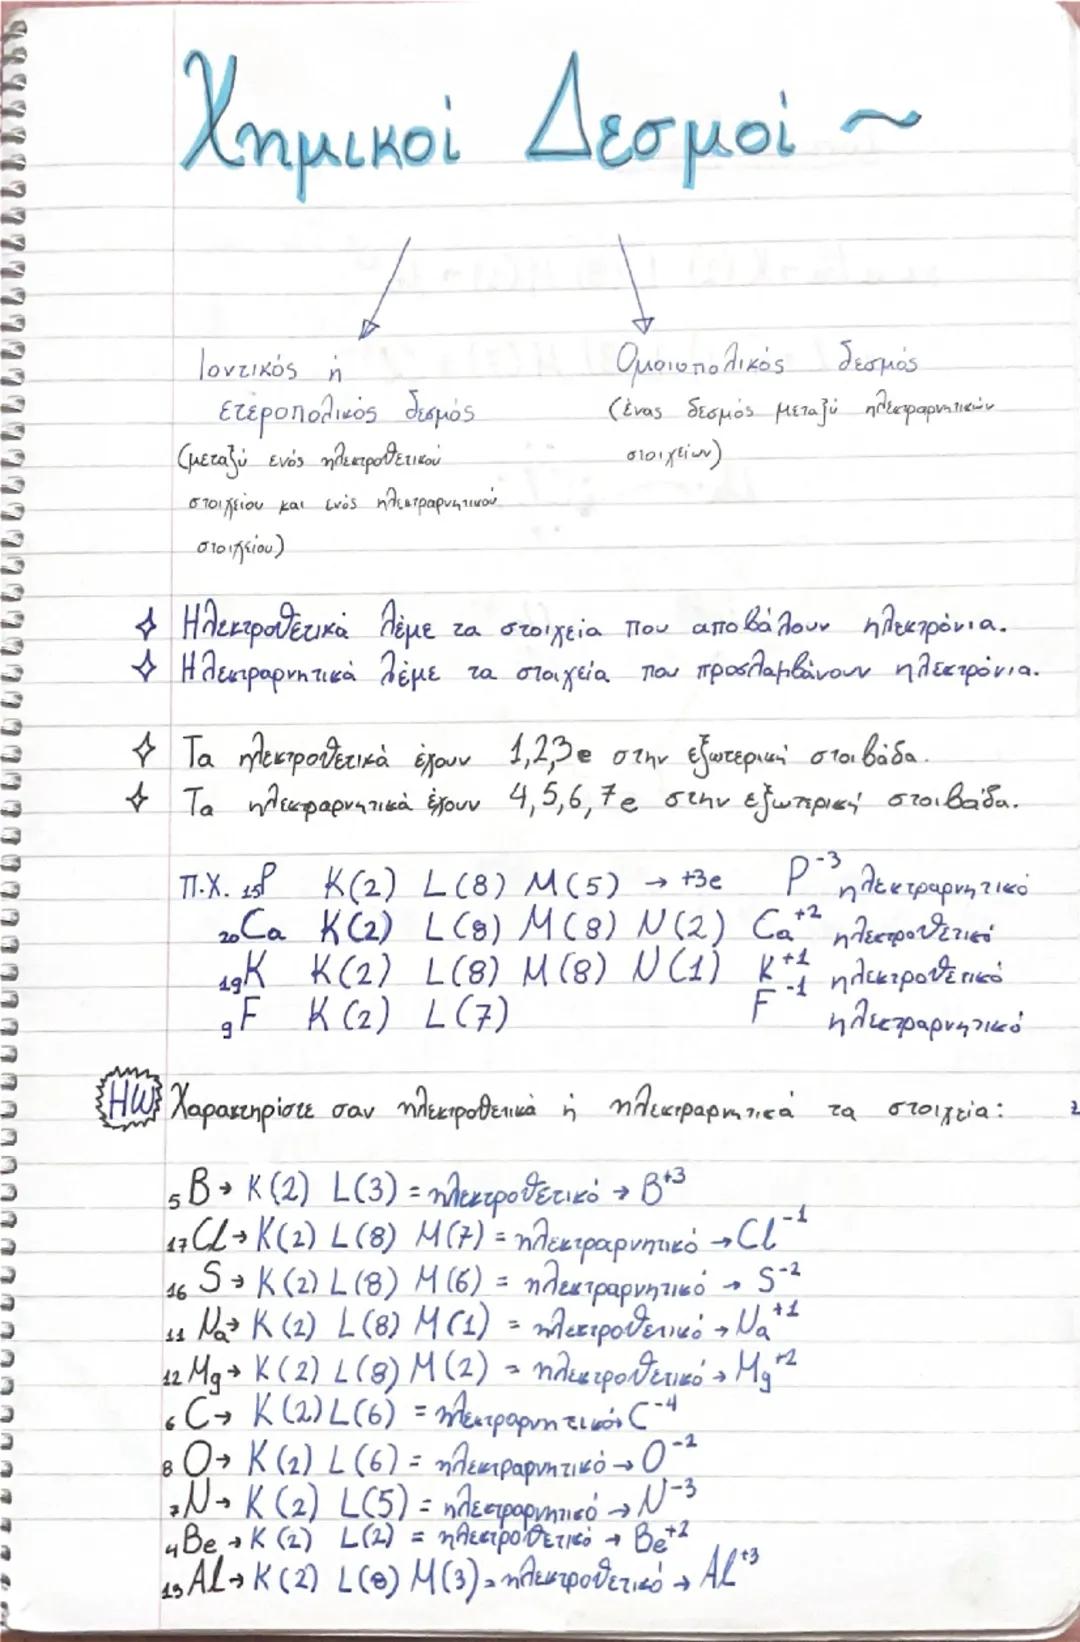 Χημικοί Δεσμοί ~
Ιοντικός ή
ετεροπολικός δεσμός
(μεταξύ ενός ηλεκτροθετικού
στοιχείου και ενός ηλεκτραρνητικού
στοιχείου)
Ομοιοπολικός δεσμός
(ένας δεσμός μεταξύ ηλεκτραρνητικών
στοιχείων)
✧ Ηλεκτροθετικά λέμε τα στοιχεία που αποβάλουν ηλεκτρόνια.
✧ Ηλεκτραρνητικά λέμε τα στοιχεία που προσλαμβάνουν ηλεκτρόνια.
✧ Τα ηλεκτροθετικά έχουν 1,2,3e στην εξωτερική στοιβάδα.
✧ Τα ηλεκτραρνητικά έχουν 4,5,6,7e στην εξωτερική στοιβάδα.
π.χ. ₁₅P K(2) L(8) M(5) → +3e P⁻³ ηλεκτραρνητικό
₂₀Ca K(2) L(8) M(8) N(2) Ca⁺² ηλεκτροθετικό
₁₉K K(2) L(8) M(8) N(1) K⁺¹ ηλεκτροθετικό
₉F K(2) L(7) F⁻¹ ηλεκτραρνητικό
HW Χαρακτηρίστε σαν ηλεκτροθετικά ή ηλεκτραρνητικά τα στοιχεία:
₅B → K(2) L(3) = ηλεκτροθετικό → B⁺³
₁₇Cl → K(2) L(8) M(7) = ηλεκτραρνητικό → Cl⁻¹
₁₆S → K(2) L(8) M(6) = ηλεκτραρνητικό → S⁻²
₁₁Na → K(2) L(8) M(1) = ηλεκτροθετικό → Na⁺¹
₁₂Mg → K(2) L(8) M(2) = ηλεκτροθετικό → Mg⁺²
₆C → K(2) L(6) = ηλεκτραρνητικό → C⁻⁴
₈O → K(2) L(6) = ηλεκτραρνητικό → O⁻²
₇N → K(2) L(5) = ηλεκτραρνητικό → N⁻³
₄Be → K(2) L(2) = ηλεκτροθετικό → Be⁺²
₁₃Al → K(2) L(8) M(3) = ηλεκτροθετικό → Al⁺³